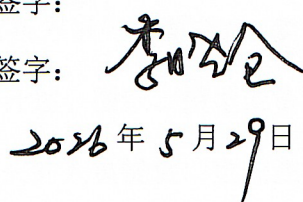 签字：
签字：
2026年5月29日